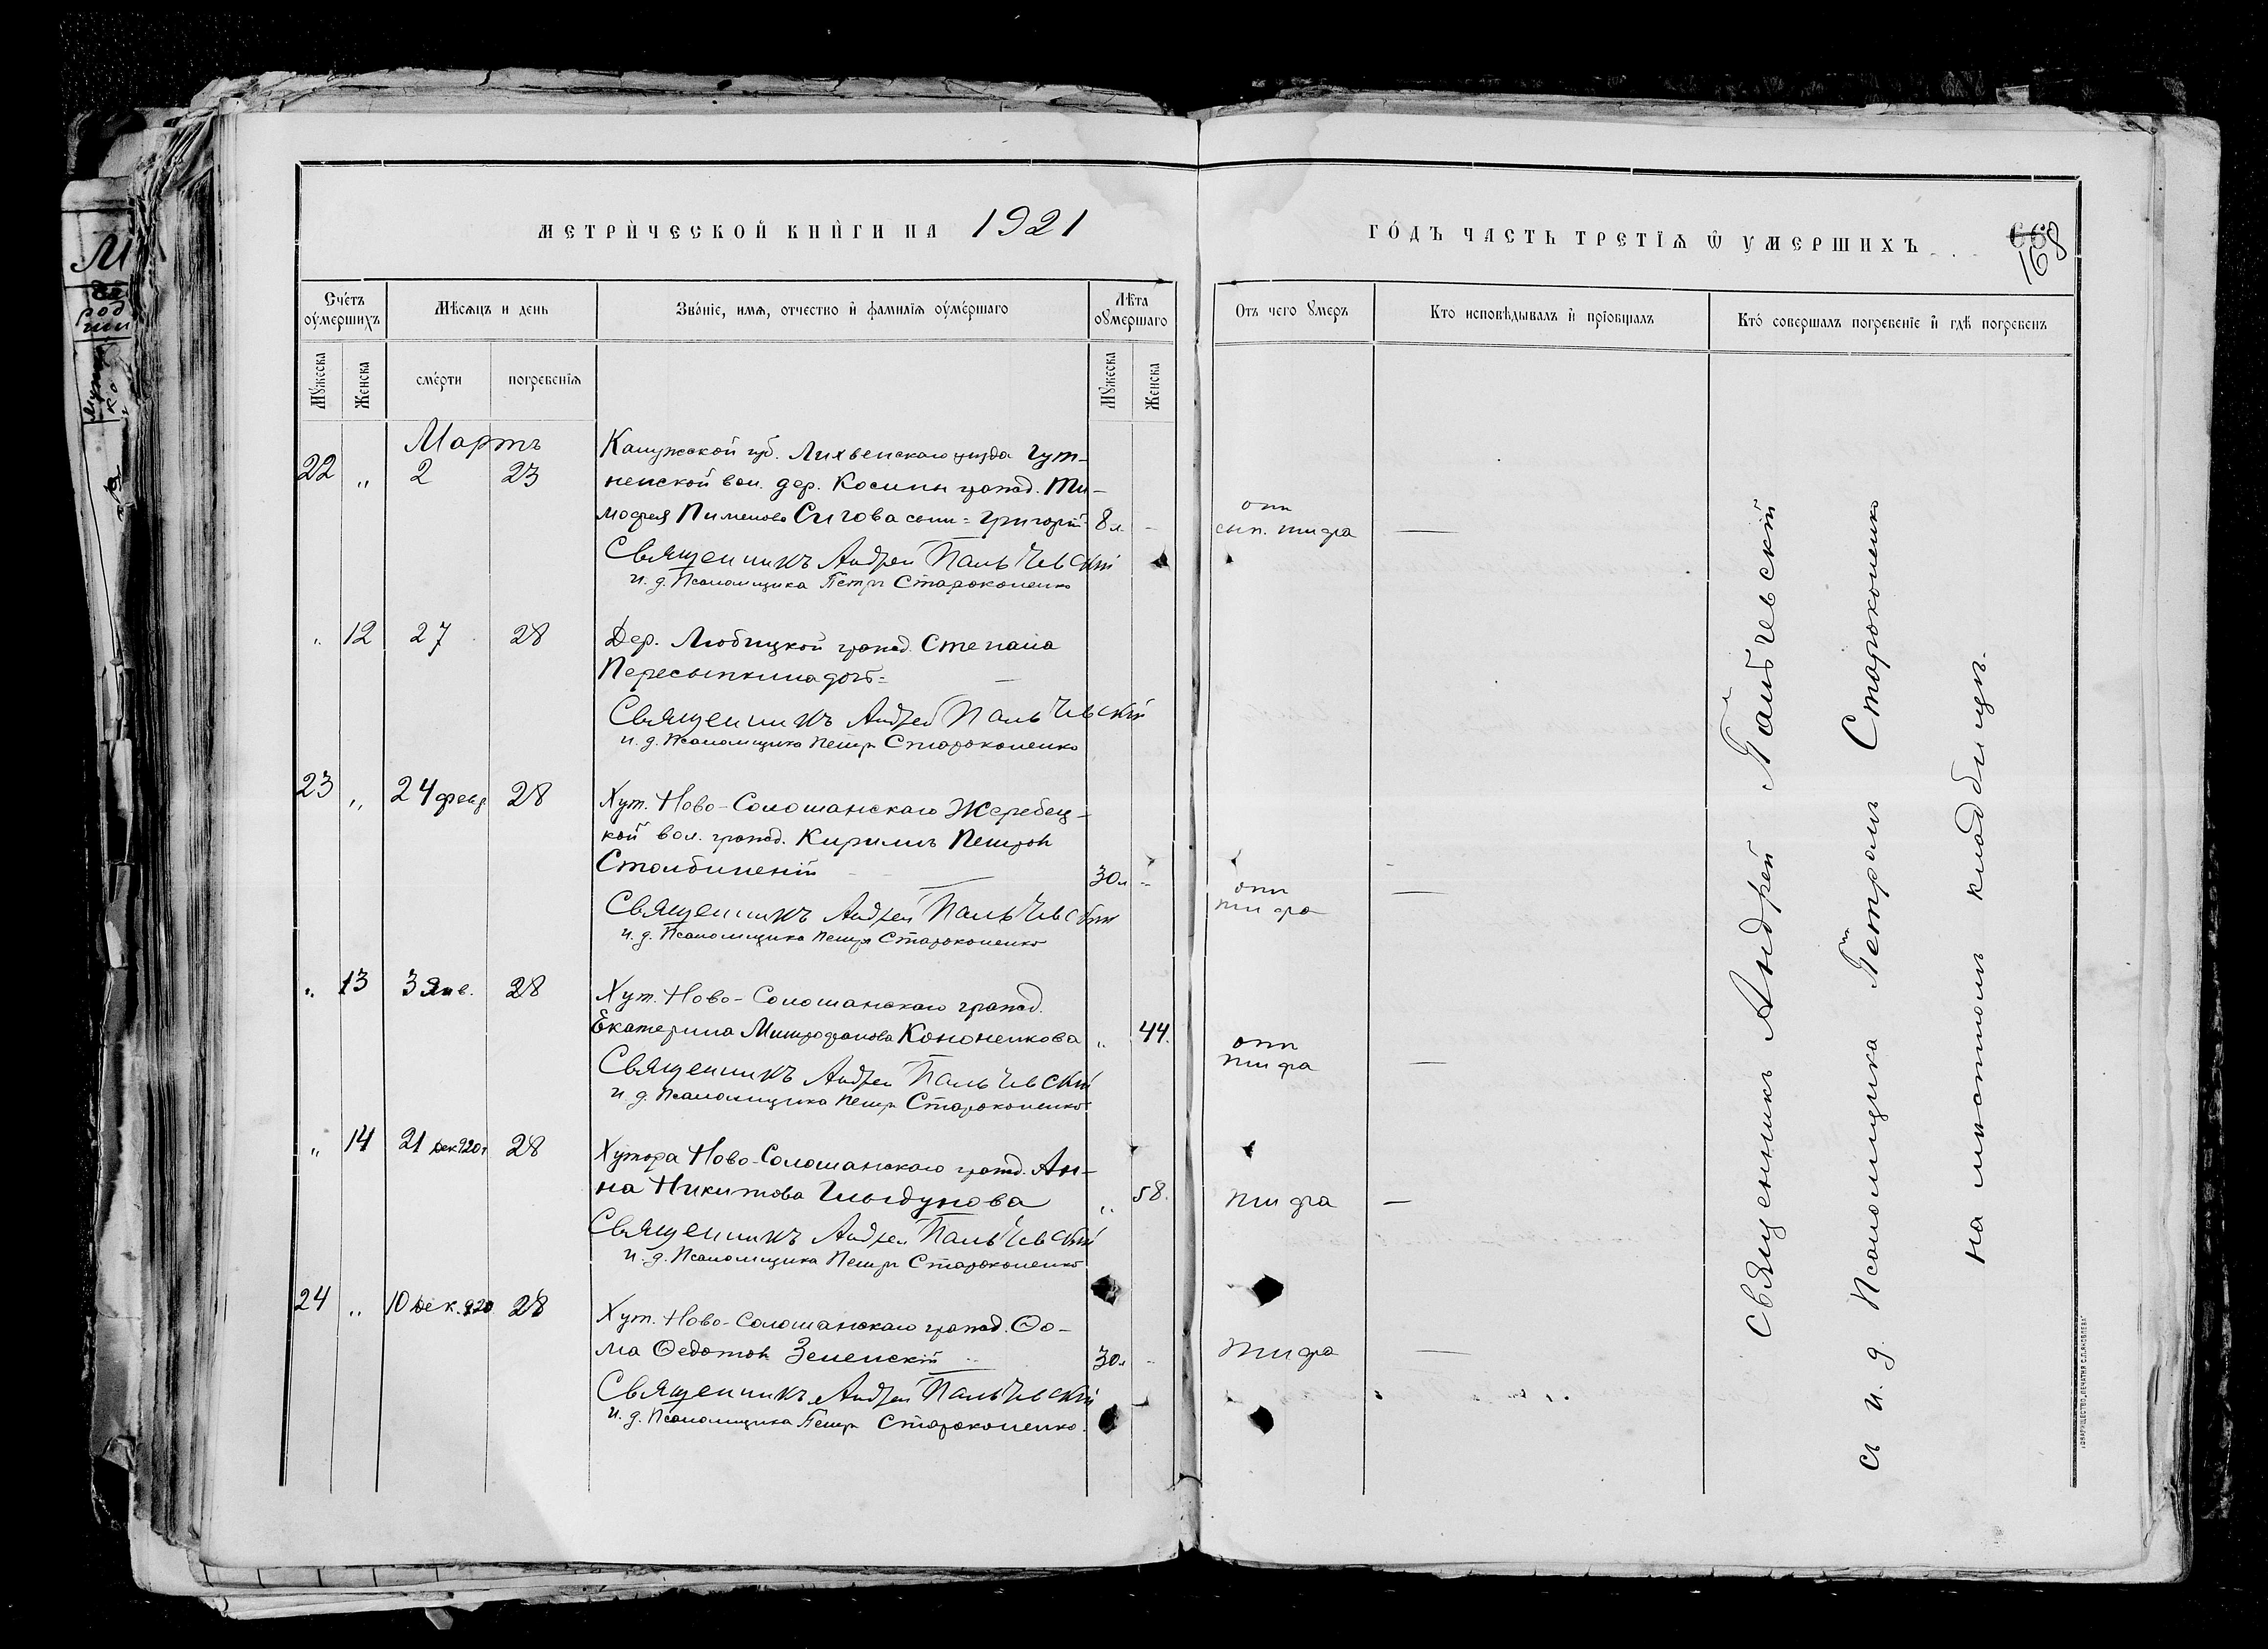 МЕТРИЧЕСКОЙ КНИГИ НА 1921
ГОДЪ ЧАСТЬ ТРЕТІЯ Ѿ УМЕРШИХЪ
168
Счетъ оумершихъ
Мѣсяцъ и день
Званіе, имя, отчество и фамилія оумершаго
Лѣта оумершаго
Отъ чего умеръ
Кто исповѣдывалъ и пріобщалъ
Кто совершалъ погребеніе и гдѣ погребенъ
Мужеска
Женска
смерти
погребенія
Мужеска
Женска
Мартъ
22 „ 2 23
Калужской губ. Лихвенскаго уѣзда Гут-
ненской вол. дер. Косины гражд. Ти-
мофея Пименова Сигова сынъ = Григорій 8 л. -
отъ
сып. тифа —
Священникъ Андрей Пальчевскій
и. д. Псаломщика Петръ Староконенко
„ 12 27 28
Дер. Любицкой гражд. Степана
Пересыпкина дочь =
Священникъ Андрей Пальчевскій
и. д. Псаломщика Петръ Староконенко
23 „ 24 февр 28
Хут. Ново-Солошанскаго Жеребец-
кой вол. гражд. Кириллъ Петровъ
30 л -
отъ
тифа —
Священникъ Андрей Пальчевскій
и. д. Псаломщика Петръ Староконенко
„ 13 3 Янв. 28
Хут. Ново-Солошанскаго гражд.
Екатерина Митрофанова Кононенкова „ 44.
отъ
тифа —
Священникъ Андрей Пальчевскій
и. д. Псаломщика Петръ Староконенко
„ 14 21 Дек 920 г 28
Хутора Ново-Солошанскаго гражд. Ан-
на Никитова „ 58.
тифа —
Священникъ Андрей Пальчевскій
и. д. Псаломщика Петръ Староконенко
24 „ 10 Дек. 920 28
Хут. Ново-Солошанскаго гражд. Ѳо-
ма Ѳедотовъ Зеленскій 30 л -
тифа —
Священникъ Андрей Пальчевскій
и. д. Псаломщика Петръ Староконенко.
Священникъ Андрей Пальчевскій
съ и. д. Псаломщика Петромъ Староконенко
на мѣстномъ кладбищѣ.
ТОВАРИЩЕСТВО „ПЕЧАТНЯ С.П.ЯКОВЛЕВА“